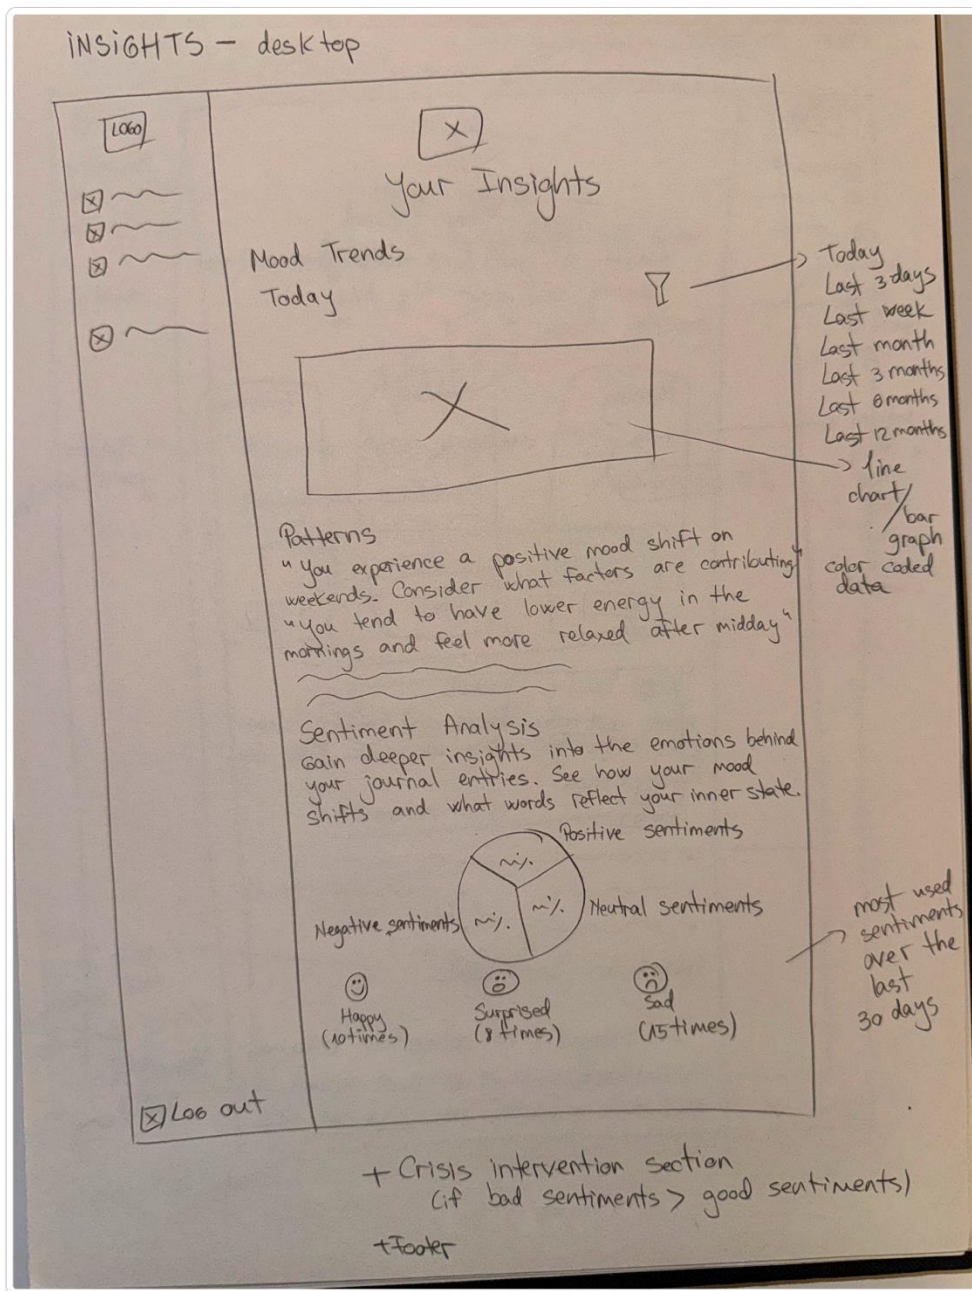 iNSiGHTS - desktop
LOGO
Your Insights
Mood Trends
Today
Today
Last 3 days
Last week
Last month
Last 3 months
Last 6 months
Last 12 months
line
chart/
bar
graph
color coded
data
Patterns
"You experience a positive mood shift on
weekends. Consider what factors are contributing"
"You tend to have lower energy in the
mornings and feel more relaxed after midday"
Sentiment Analysis
Gain deeper insights into the emotions behind
your journal entries. See how your mood
shifts and what words reflect your inner state.
Positive sentiments
%
%
%
Negative sentiments
Neutral sentiments
most used
sentiments
over the
last
30 days
Happy
(10 times)
Surprised
(8 times)
Sad
(15 times)
LOG out
+ Crisis intervention section
(if bad sentiments > good sentiments)
+Footer